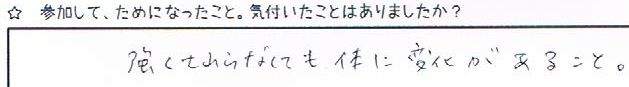 ☆ 参加して、ためになったこと。気付いたことはありましたか?
強くさわらなくても体に変化があること。